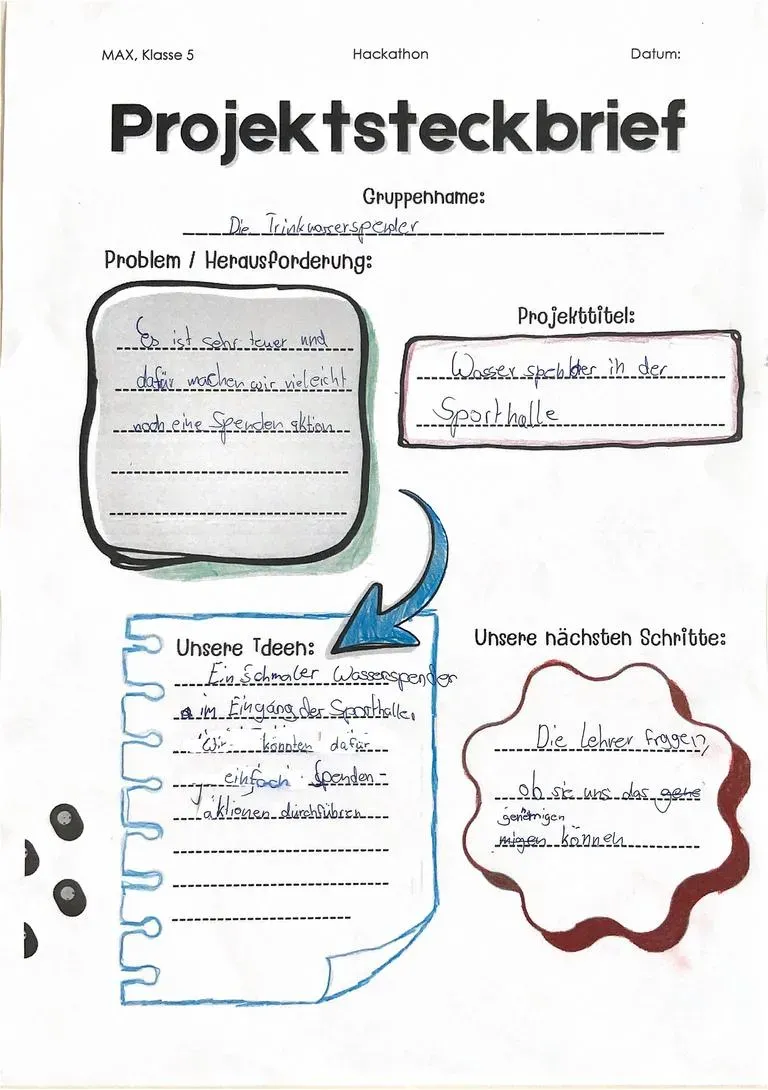 MAX, Klasse 5 Hackathon Datum:
Projektsteckbrief
Gruppenname:
Die Trinkwasserspender
Problem / Herausforderung:
Es ist sehr teuer und
dafür machen wir vieleicht
noch eine Spenden aktion
Projekttitel:
Wasser spender in der
Sporthalle
Unsere Ideen:
Ein Schmaler Wasserspender
im Eingang der Sporthalle.
Wir könnten dafür
einfach Spenden-
aktionen durchführen
Unsere nächsten Schritte:
Die Lehrer fragen,
ob sie uns das gene
genemigen
migen können